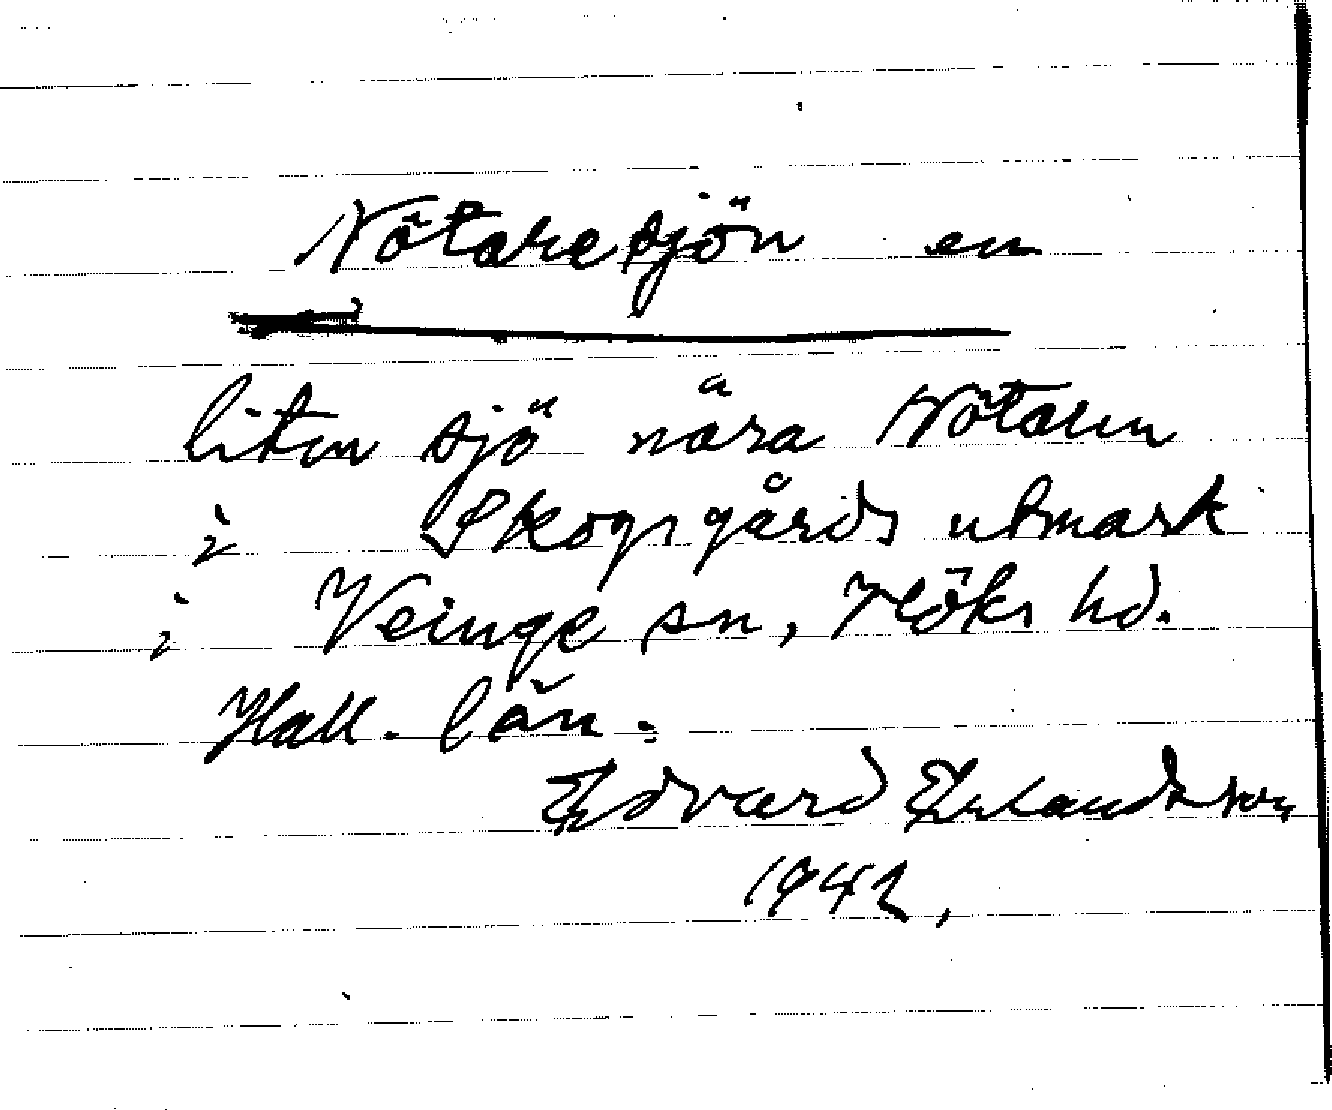 Nötaresjön en
liten sjö nära Nötaren
i Skogsgårds utmark
i Veinge sn, Höks hd.
Hall. län.
Edvard Erlandsson
1942.